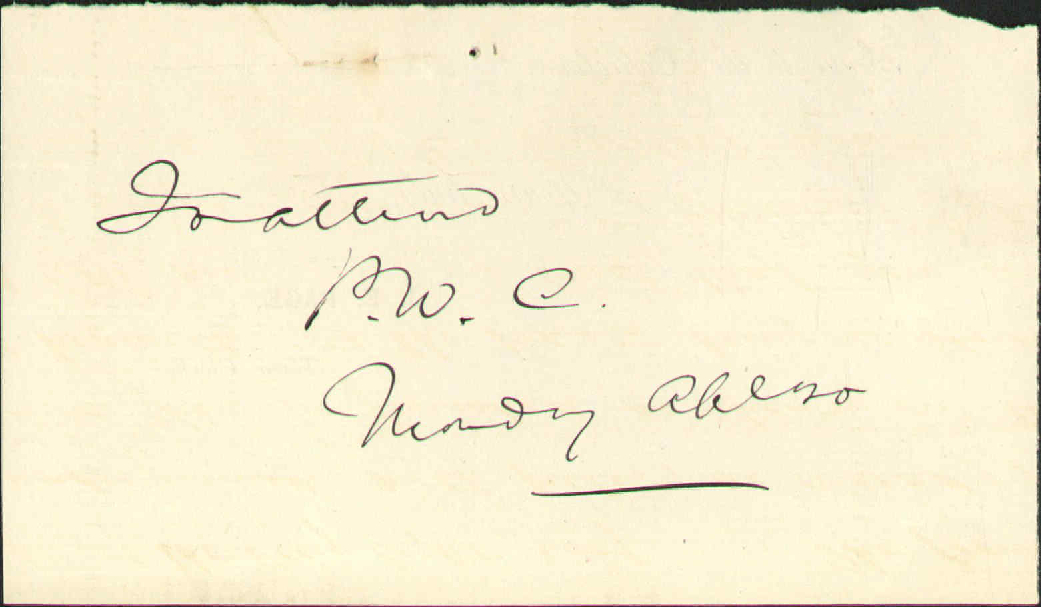 To attend
P.W. C.
Monday